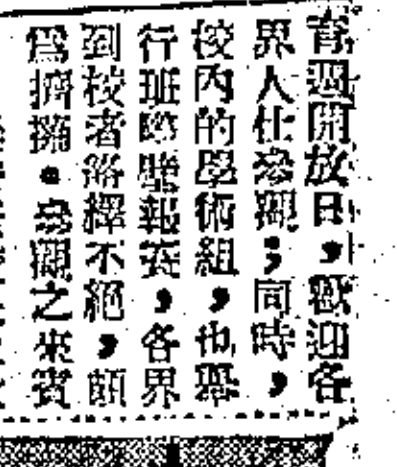 育週開放日，歡迎各
界人仕參觀；同時，
校內的學術組，也舉
行班際壁報賽，各界
到校者絡繹不絕，頗
爲擠擁。參觀之來賓